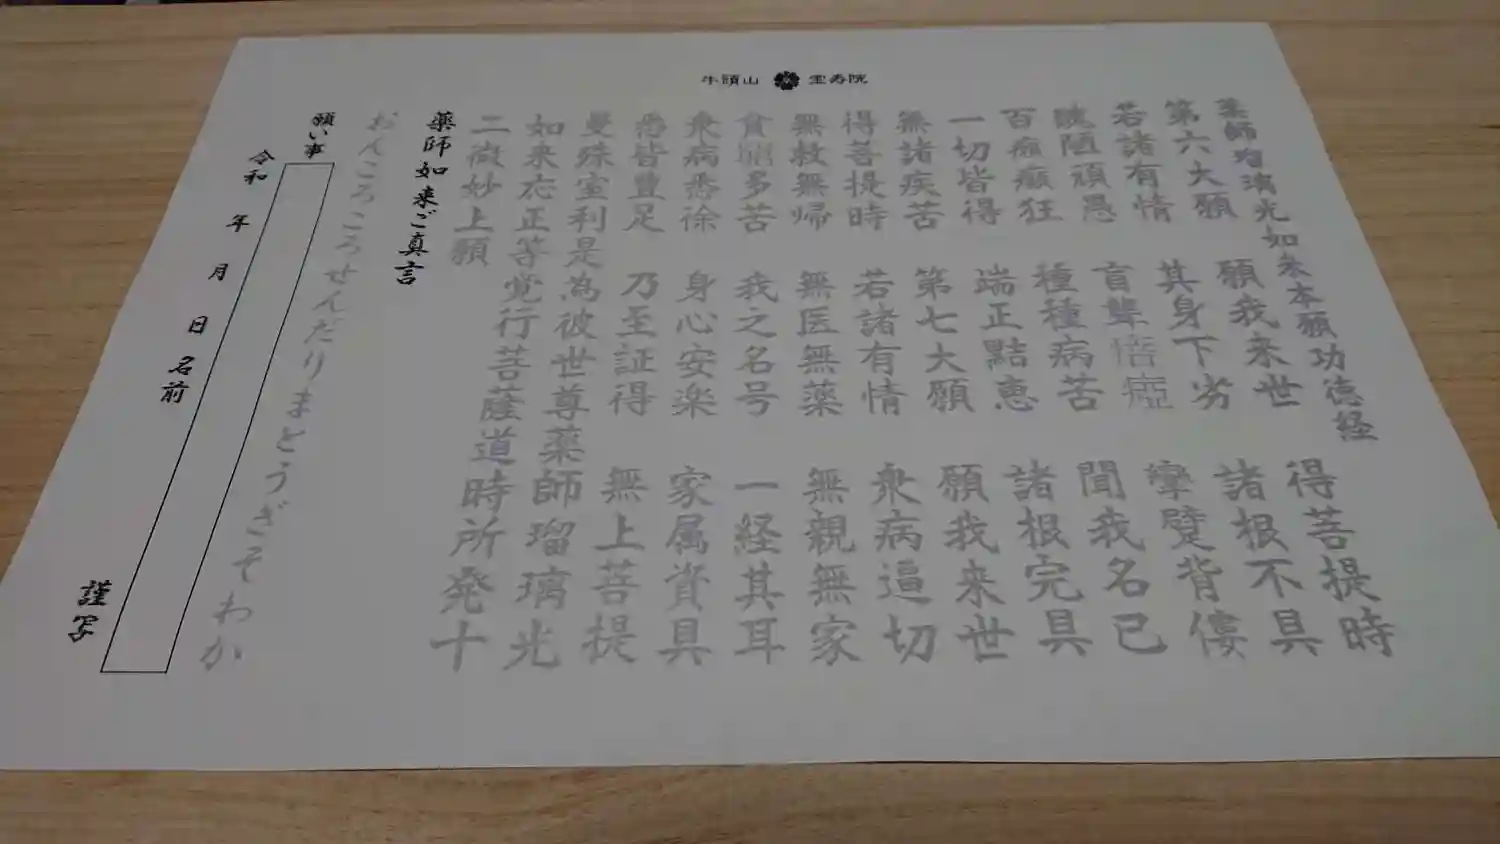 牛頭山 宝寿院
薬師瑠璃光如来本願功徳経
第六大願 願我来世 得菩提時
若諸有情 其身下劣 諸根不具
醜陋頑愚 盲聾瘖瘂 攣躄背僂
百癩癲狂 種種病苦 聞我名已
一切皆得 端正黠恵 諸根完具
無諸疾苦 第七大願 願我来世
得菩提時 若諸有情 衆病逼切
無救無帰 無医無薬 無親無家
貧窮多苦 我之名号 一経其耳
衆病悉徐 身心安楽 家属資具
悉皆豊足 乃至証得 無上菩提
曼殊室利是為彼世尊薬師瑠璃光
如来応正等覚行菩薩道時所発十
二微妙上願
薬師如来ご真言
おんころころせんだりまとうぎそわか
願い事
令和 年 月 日 名前 謹写